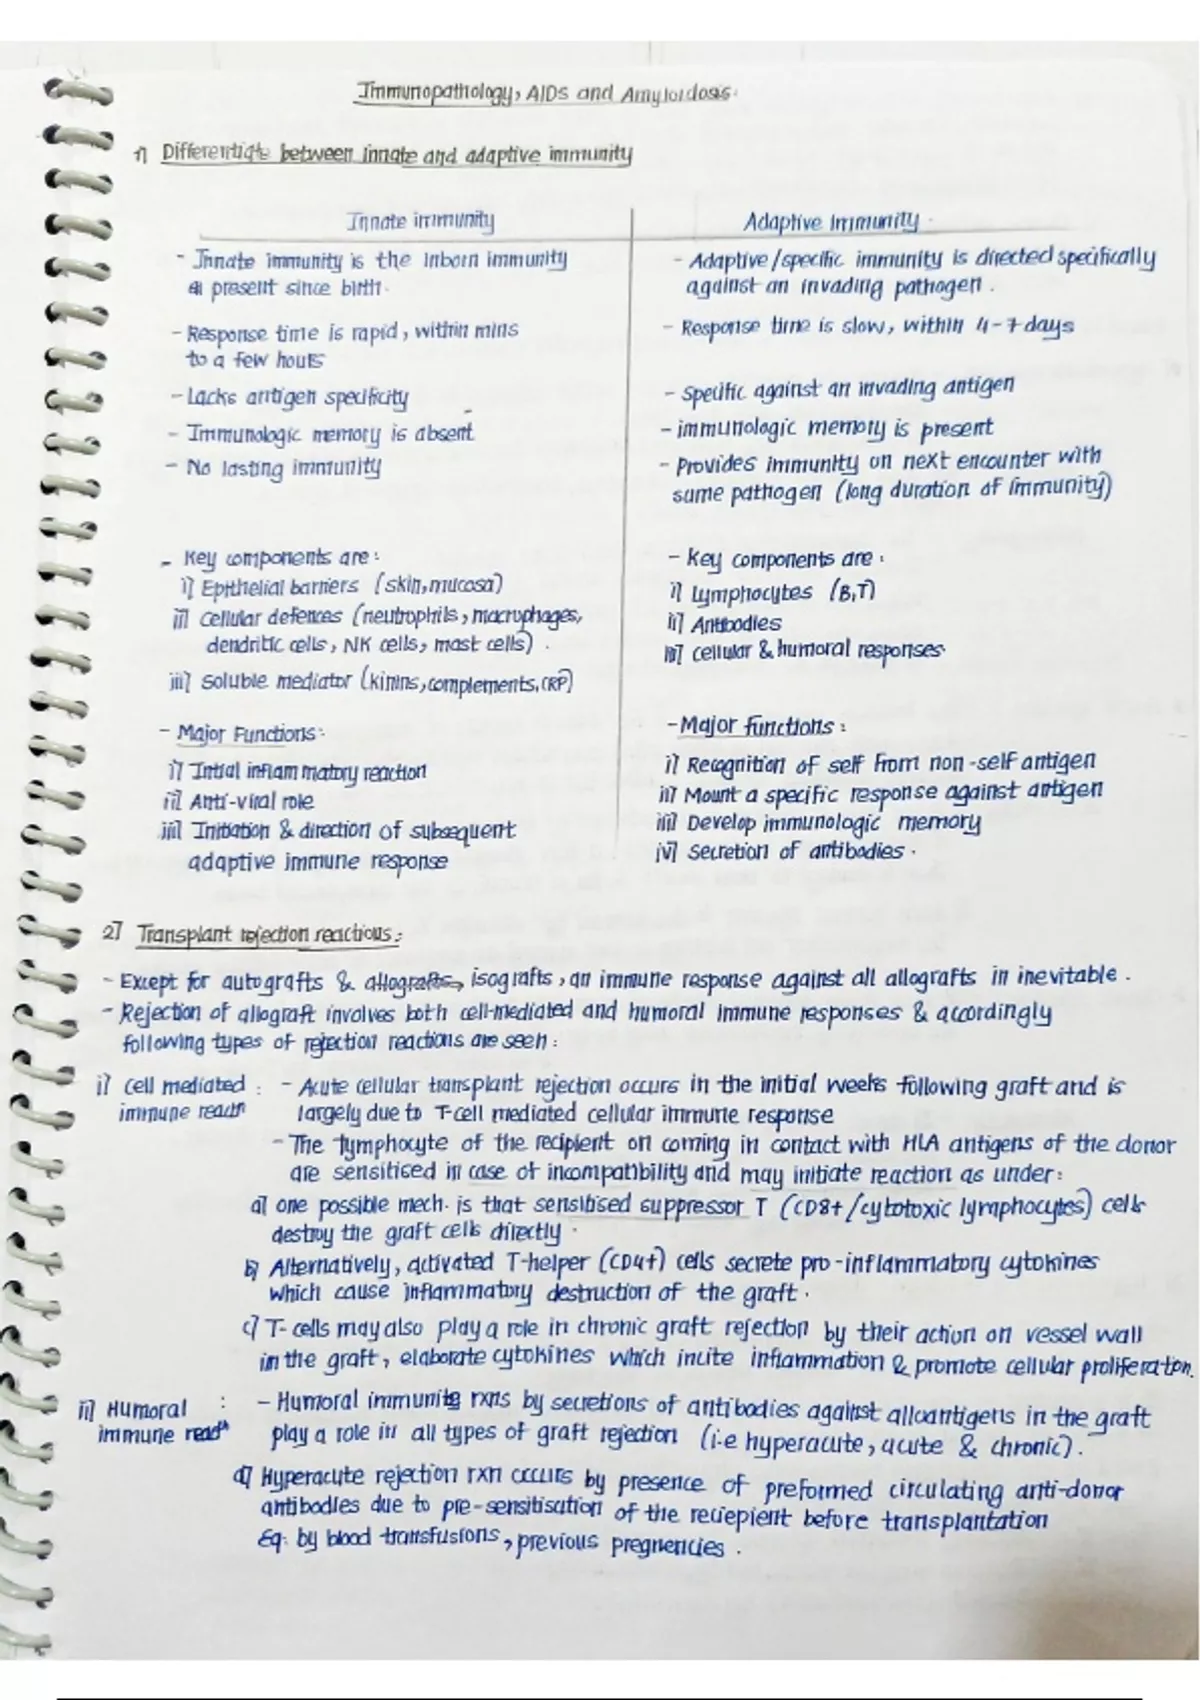 Immunopathology, AIDs and Amyloidosis.
1] Differentiate between innate and adaptive immunity
Innate immunity
- Innate immunity is the inborn immunity
present since birth.
- Response time is rapid, within mins
to a few hours
- Lacks antigen specificity
- Immunologic memory is absent
- No lasting immunity
- Key components are:
i] Epithelial barriers (skin, mucosa)
ii] Cellular defences (neutrophils, macrophages,
dendritic cells, NK cells, mast cells).
iii] Soluble mediator (kinins, complements, CRP)
- Major Functions:
i] Intial inflammatory reaction
ii] Anti-viral role
iii] Initiation & direction of subsequent
adaptive immune response
Adaptive Immunity.
- Adaptive/specific immunity is directed specifically
against an invading pathogen.
- Response time is slow, within 4-7 days
- Specific against an invading antigen
- immunologic memory is present
- Provides immunity on next encounter with
same pathogen (long duration of immunity)
- Key components are:
i] Lymphocytes (B,T)
ii] Antibodies
iii] cellular & humoral responses.
- Major functions:
i] Recognition of self from non-self antigen
ii] Mount a specific response against antigen
iii] Develop immunologic memory
iv] Secretion of antibodies.
2] Transplant rejection reactions:
- Except for autografts & allografts, isografts, an immune response against all allografts in inevitable.
- Rejection of allograft involves both cell-mediated and humoral immune responses & accordingly
following types of rejection reactions are seen:
i] Cell mediated : - Acute cellular transplant rejection occurs in the initial weeks following graft and is
immune reactn largely due to T-cell mediated cellular immune response
- The lymphocyte of the recipient on coming in contact with HLA antigens of the donor
are sensitised in case of incompatibility and may initiate reaction as under:
a] one possible mech. is that sensitised suppressor T (CD8+/cytotoxic lymphocytes) cells
destroy the graft cells directly.
b] Alternatively, activated T-helper (CD4+) cells secrete pro-inflammatory cytokines
which cause inflammatory destruction of the graft.
c] T-cells may also play a role in chronic graft rejection by their action on vessel wall
in the graft, elaborate cytokines which incite inflammation & promote cellular proliferation.
ii] Humoral : - Humoral immunity rxns by secretions of antibodies against alloantigens in the graft
immune reactn play a role in all types of graft rejection (i.e hyperacute, acute & chronic).
a] Hyperacute rejection rxn occurs by presence of preformed circulating anti-donor
antibodies due to pre-sensitisation of the reciepient before transplantation
Eg: by blood transfusions, previous pregnencies.